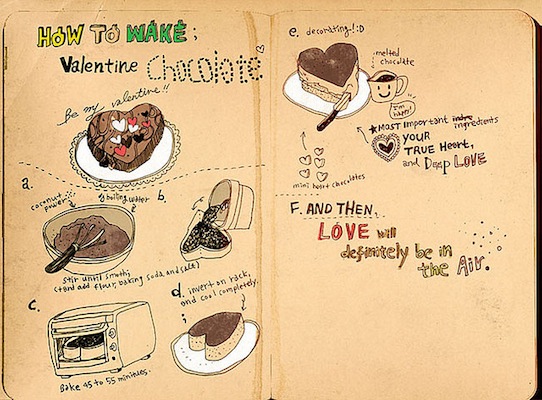 HOW TO WAKE;
Valentine Chocolate
Be my valentine!!
a.
coconut power
boiling water
b.
stir until smoth;
(+and add flour, baking soda, and salt)
c.
Bake 45 to 55 minitues.
d. invert on rack,
and cool completely.
;
e. decorating-! :D
melted
chocolate
I'm
happy!
★MOST Important indre ingredients
YOUR
TRUE Heart,
and Deep LOVE
mini heart chocolates
F. AND THEN,
LOVE will
definitely be in
the Air.